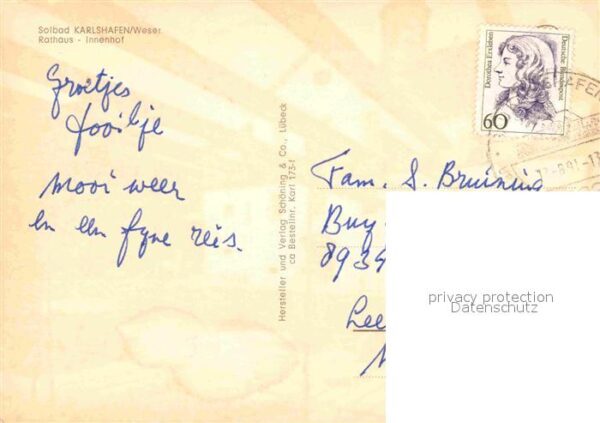 Solbad KARLSHAFEN/Weser
Rathaus - Innenhof
Groetjes
Jooilje
Mooi weer
en een fyne reis.
Hersteller und Verlag Schöning & Co., Lübeck
ca Bestellnr. Karl 173-f
Dorothea Erxleben
Deutsche Bundespost
60
Fam. S. Bruinius
Buy
8934
Lee
privacy protection
Datenschutz